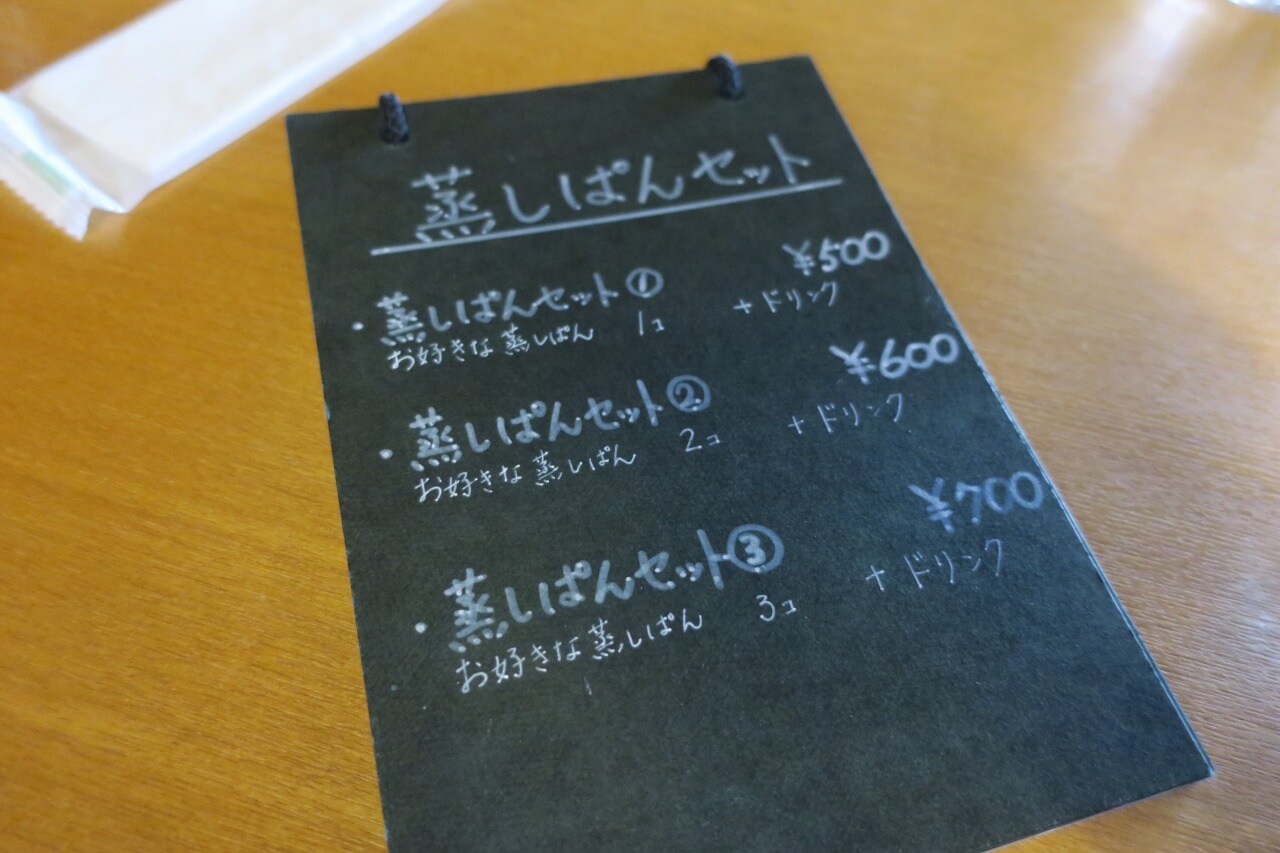 蒸しぱんセット
・蒸しぱんセット① ¥500
お好きな蒸しぱん 1コ +ドリンク
・蒸しぱんセット② ¥600
お好きな蒸しぱん 2コ +ドリンク
・蒸しぱんセット③ ¥700
お好きな蒸しぱん 3コ +ドリンク